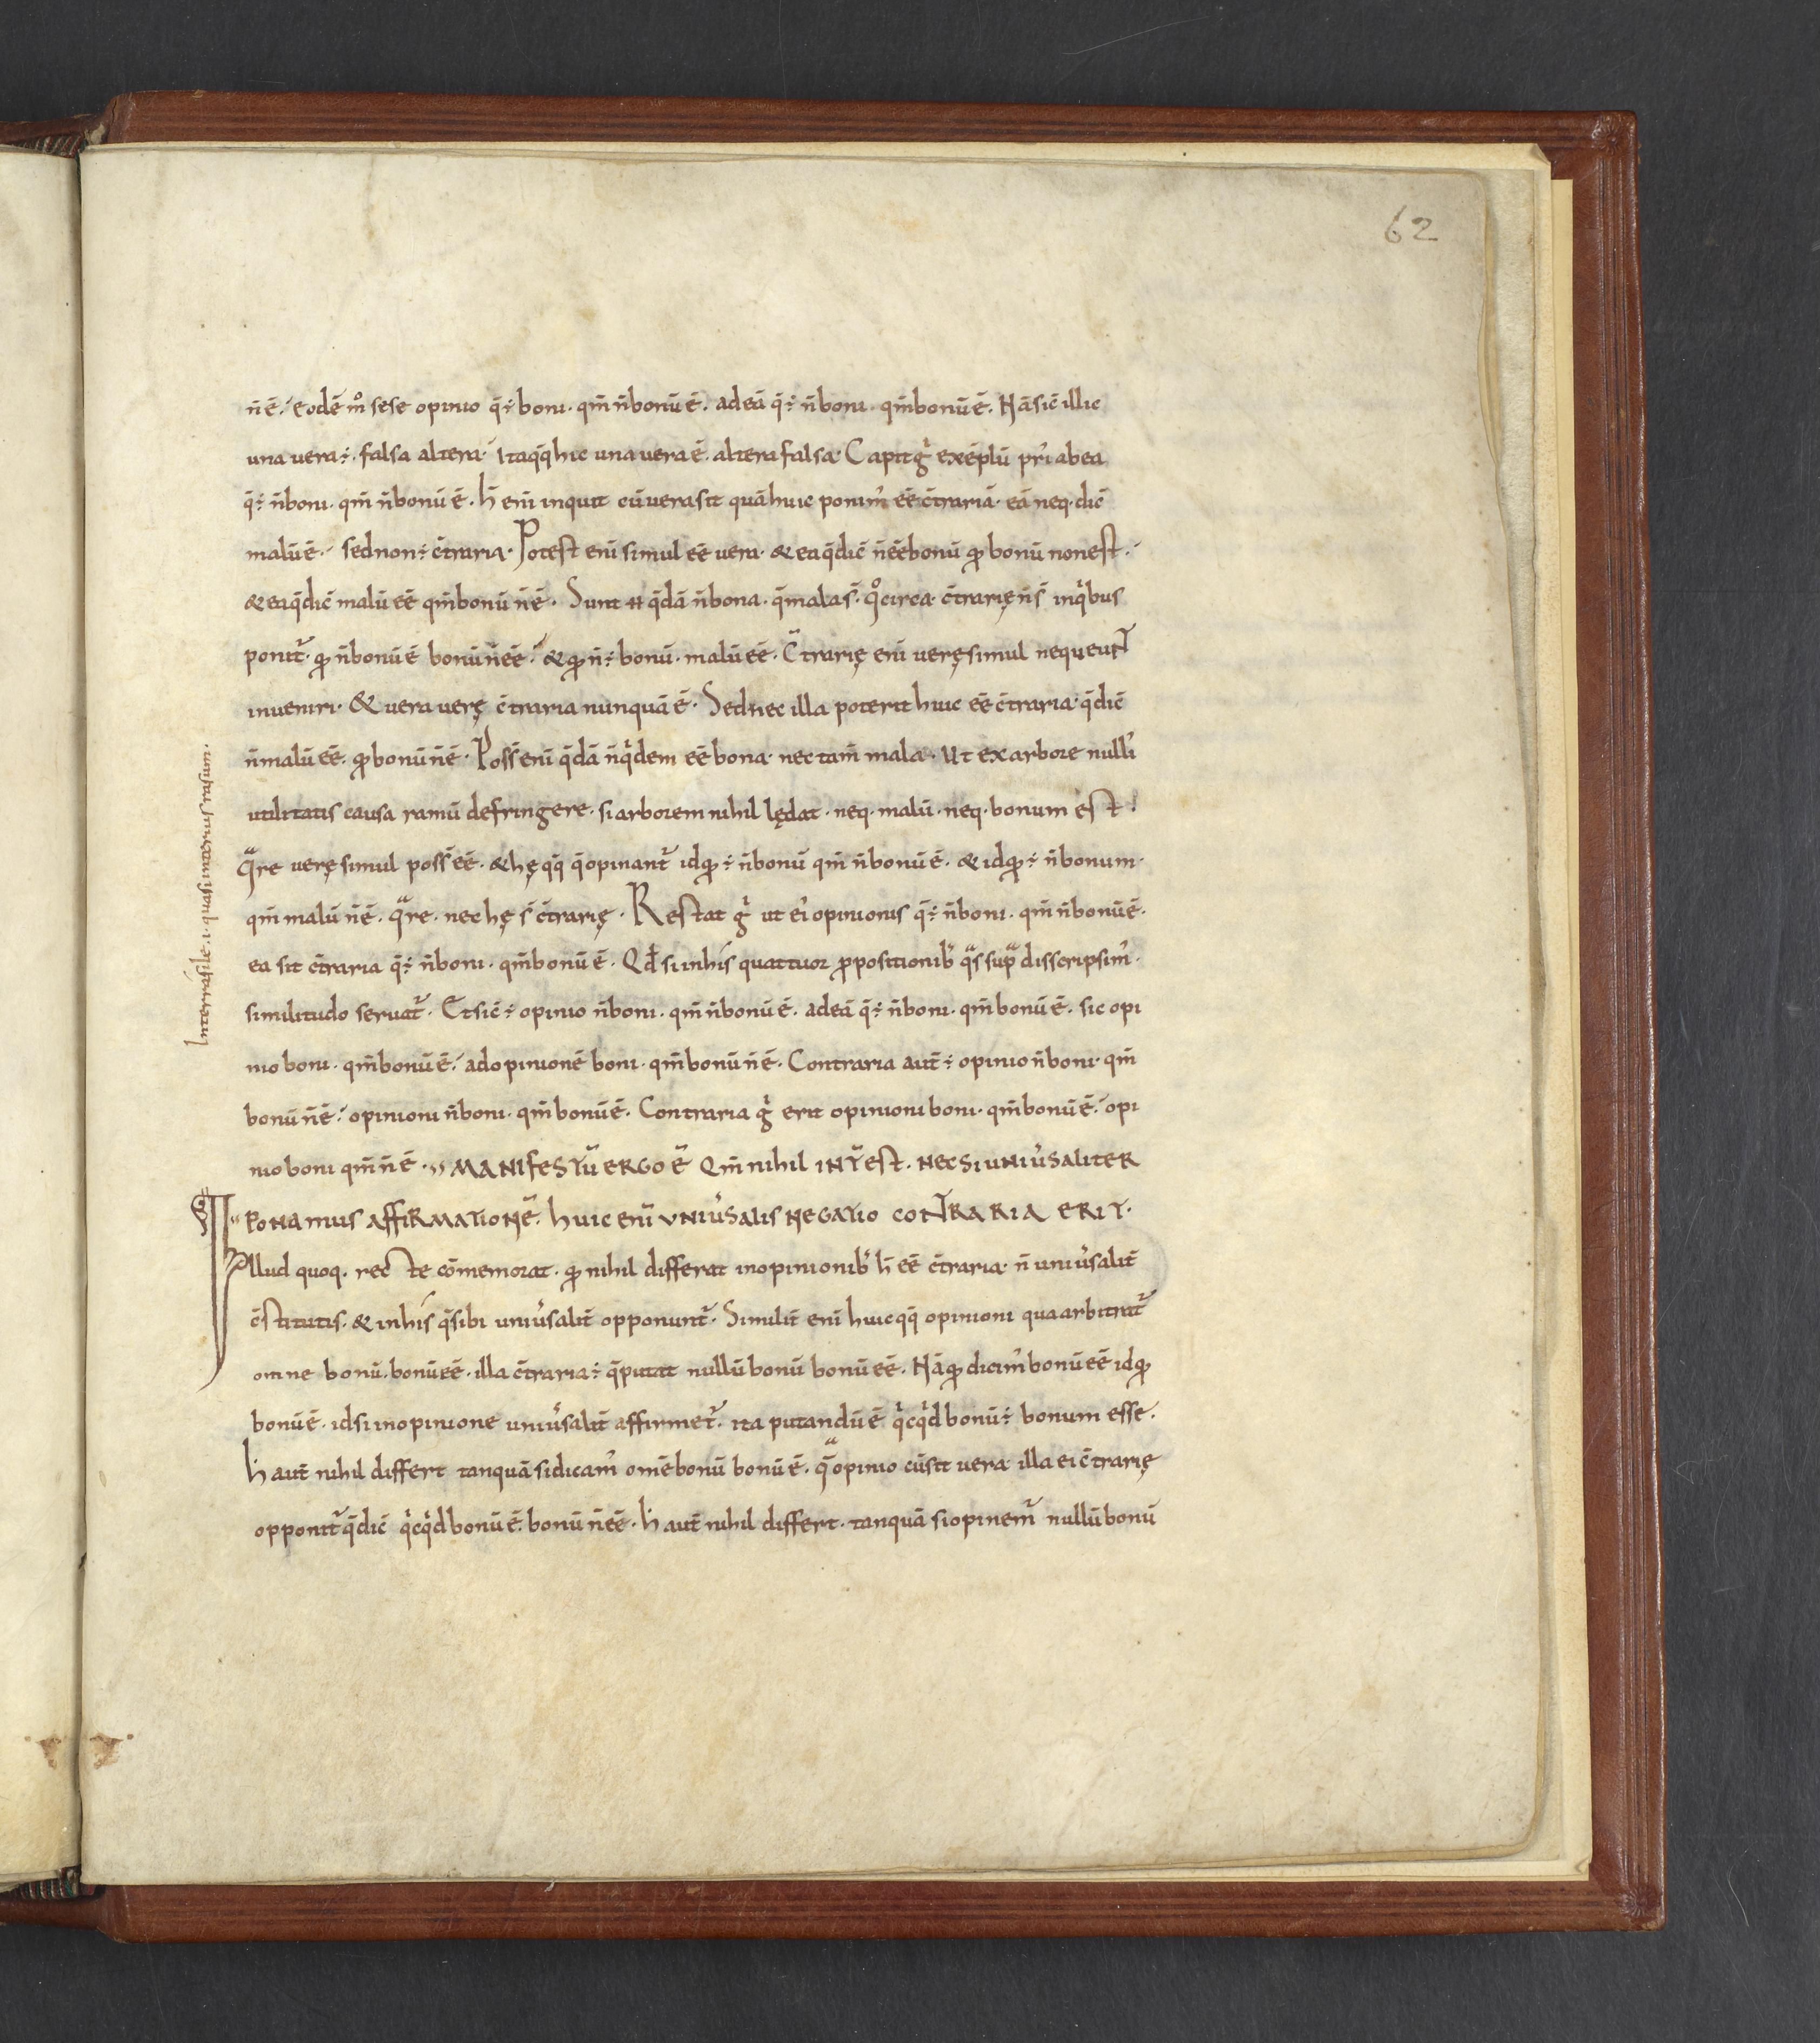 62
n̄ ē. eodē m̊ sese opinio q̄ ÷ boni. qm̄ n̄ bonū ē. ad eā q̄ ÷ n̄ boni. qm̄ bonū ē. Nā sic̄ illic
una uera ÷. falsa altera. ita q̄q̄ hic una uera ē. altera falsa. Capit gͥ exēplū pri᾽ ab ea
q̄ ÷ n̄ boni. qm̄ n̄ bonū ē. h̄ enī inquit cū uera sit quā huic ponim᾽ ēē c̄trariā. eā neq. dic̄
malū ē. sed non ÷ c̄traria. Potest enī simul ēē uera. & ea q̄ dic̄ n̄ ēē bonū qđ bonū non est.
& ea q̄ dic̄ malū ēē qm̄ bonū n̄ ē. Sunt H q̄dā n̄ bona. q̄ mala s̄. qͦcirca. c̄trarię n̄ s̄ in qͥbus
ponit᷑. qđ n̄ bonū ē bonū n̄ ēē. & qđ n̄ ÷ bonū. malū ēē. C̄trarię enī uerę simul nequeunt
inueniri. & uera uerę c̄traria nunquā ē. Sed nec illa poterit huic ēē c̄traria. q̄ dic̄
n̄ malū ēē. qđ bonū n̄ ē. Poss̄ enī q̄dā n̄ qͥdem ēē bona. nec tam̄ mala. Ut ex arbore nulli᾽
utilitatis causa ramū defringere. si arborem nihil lędat. neq. malū. neq. bonum est.
qͣre uerę simul poss̄ ēē. & hę q̄q̄ q̄ opinant᷑ id qđ ÷ n̄ bonū qm̄ n̄ bonū ē. & id qđ ÷ n̄ bonum.
qm̄ malū n̄ ē. qͣre. nec hę s̄ c̄trarię. Restat gͥ ut ei᾽ opinionis q̄ ÷ n̄ boni. qm̄ n̄ bonū ē.
ea sit c̄traria q̄ ÷ n̄ boni. qm̄ bonū ē. Qđ si in his quattuor ꝓpositionib᾽ qͣs supͣ disscripsim᾽.
similitudo seruat᷑. Et sic̄ ÷ opinio n̄ boni. qm̄ n̄ bonū ē. ad eā q̄ ÷ n̄ boni. qm̄ bonū ē. sic opi
nio boni. qm̄ bonū ē. ad opinionē boni. qm̄ bonū n̄ ē. Contraria aut̄ ÷ opinio n̄ boni. qm̄
bonū n̄ ē. opinioni n̄ boni. qm̄ bonū ē. Contraria gͥ erit opinioni boni. qm̄ bonū ē. opi
nio boni qm̄ n̄ ē. MANIFESTŪ ERGO Ē QM̄ NIHIL INT̄EST. NEC SI UNIU᾽SALITER
PONAMUS AFFIRMATIONĒ. HUIC ENĪ UNIU᾽SALIS NEGATIO CONTRARIA ERIT.
Illud quoq. recte cōmemorat. qđ nihil differat in opinionib᾽ h̄ ēē c̄traria. n̄ uniu᾽salit̄
c̄stitutis. & in his q̄ sibi uniu᾽salit̄ opponunt᷑. Similit̄ enī huic q̄q̄ opinioni qua arbitrat᷑
omne bonū. bonū ēē. illa c̄traria ÷ q̄ putat nullū bonū bonū ēē. Nā qđ dicim᾽ bonū ēē id qđ
bonū ē. id si in opinione uniu᾽salit̄ affirmet᷑. ita putandū ē qͥcqͥd bonū ÷ bonum esse.
h̄ aut̄ nihil differt tanquā si dicam᾽ omē bonū bonū ē. q̄ͣ opinio cū sit uera illa ei c̄trarię
opponit᷑ q̄ dic̄ qͥcqͥd bonū ē. bonū n̄ ēē. h̄ aut̄ nihil differt. tanquā si opinem᷑ nullū bonū
Interrasile .i. quasi interius rasum.